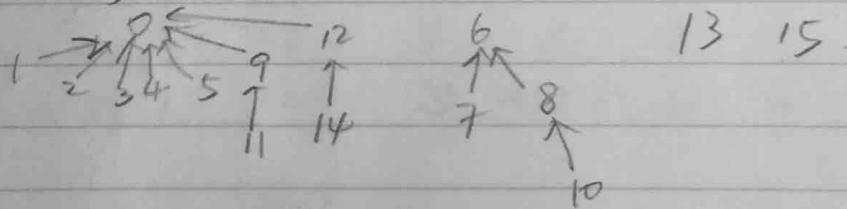 0 12 6 13 15
1 2 3 4 5 9
11 14 7 8
10